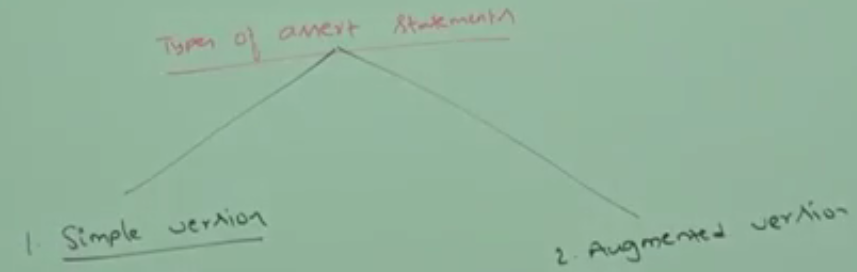 Types of assert Statements
1. Simple version
2. Augmented version